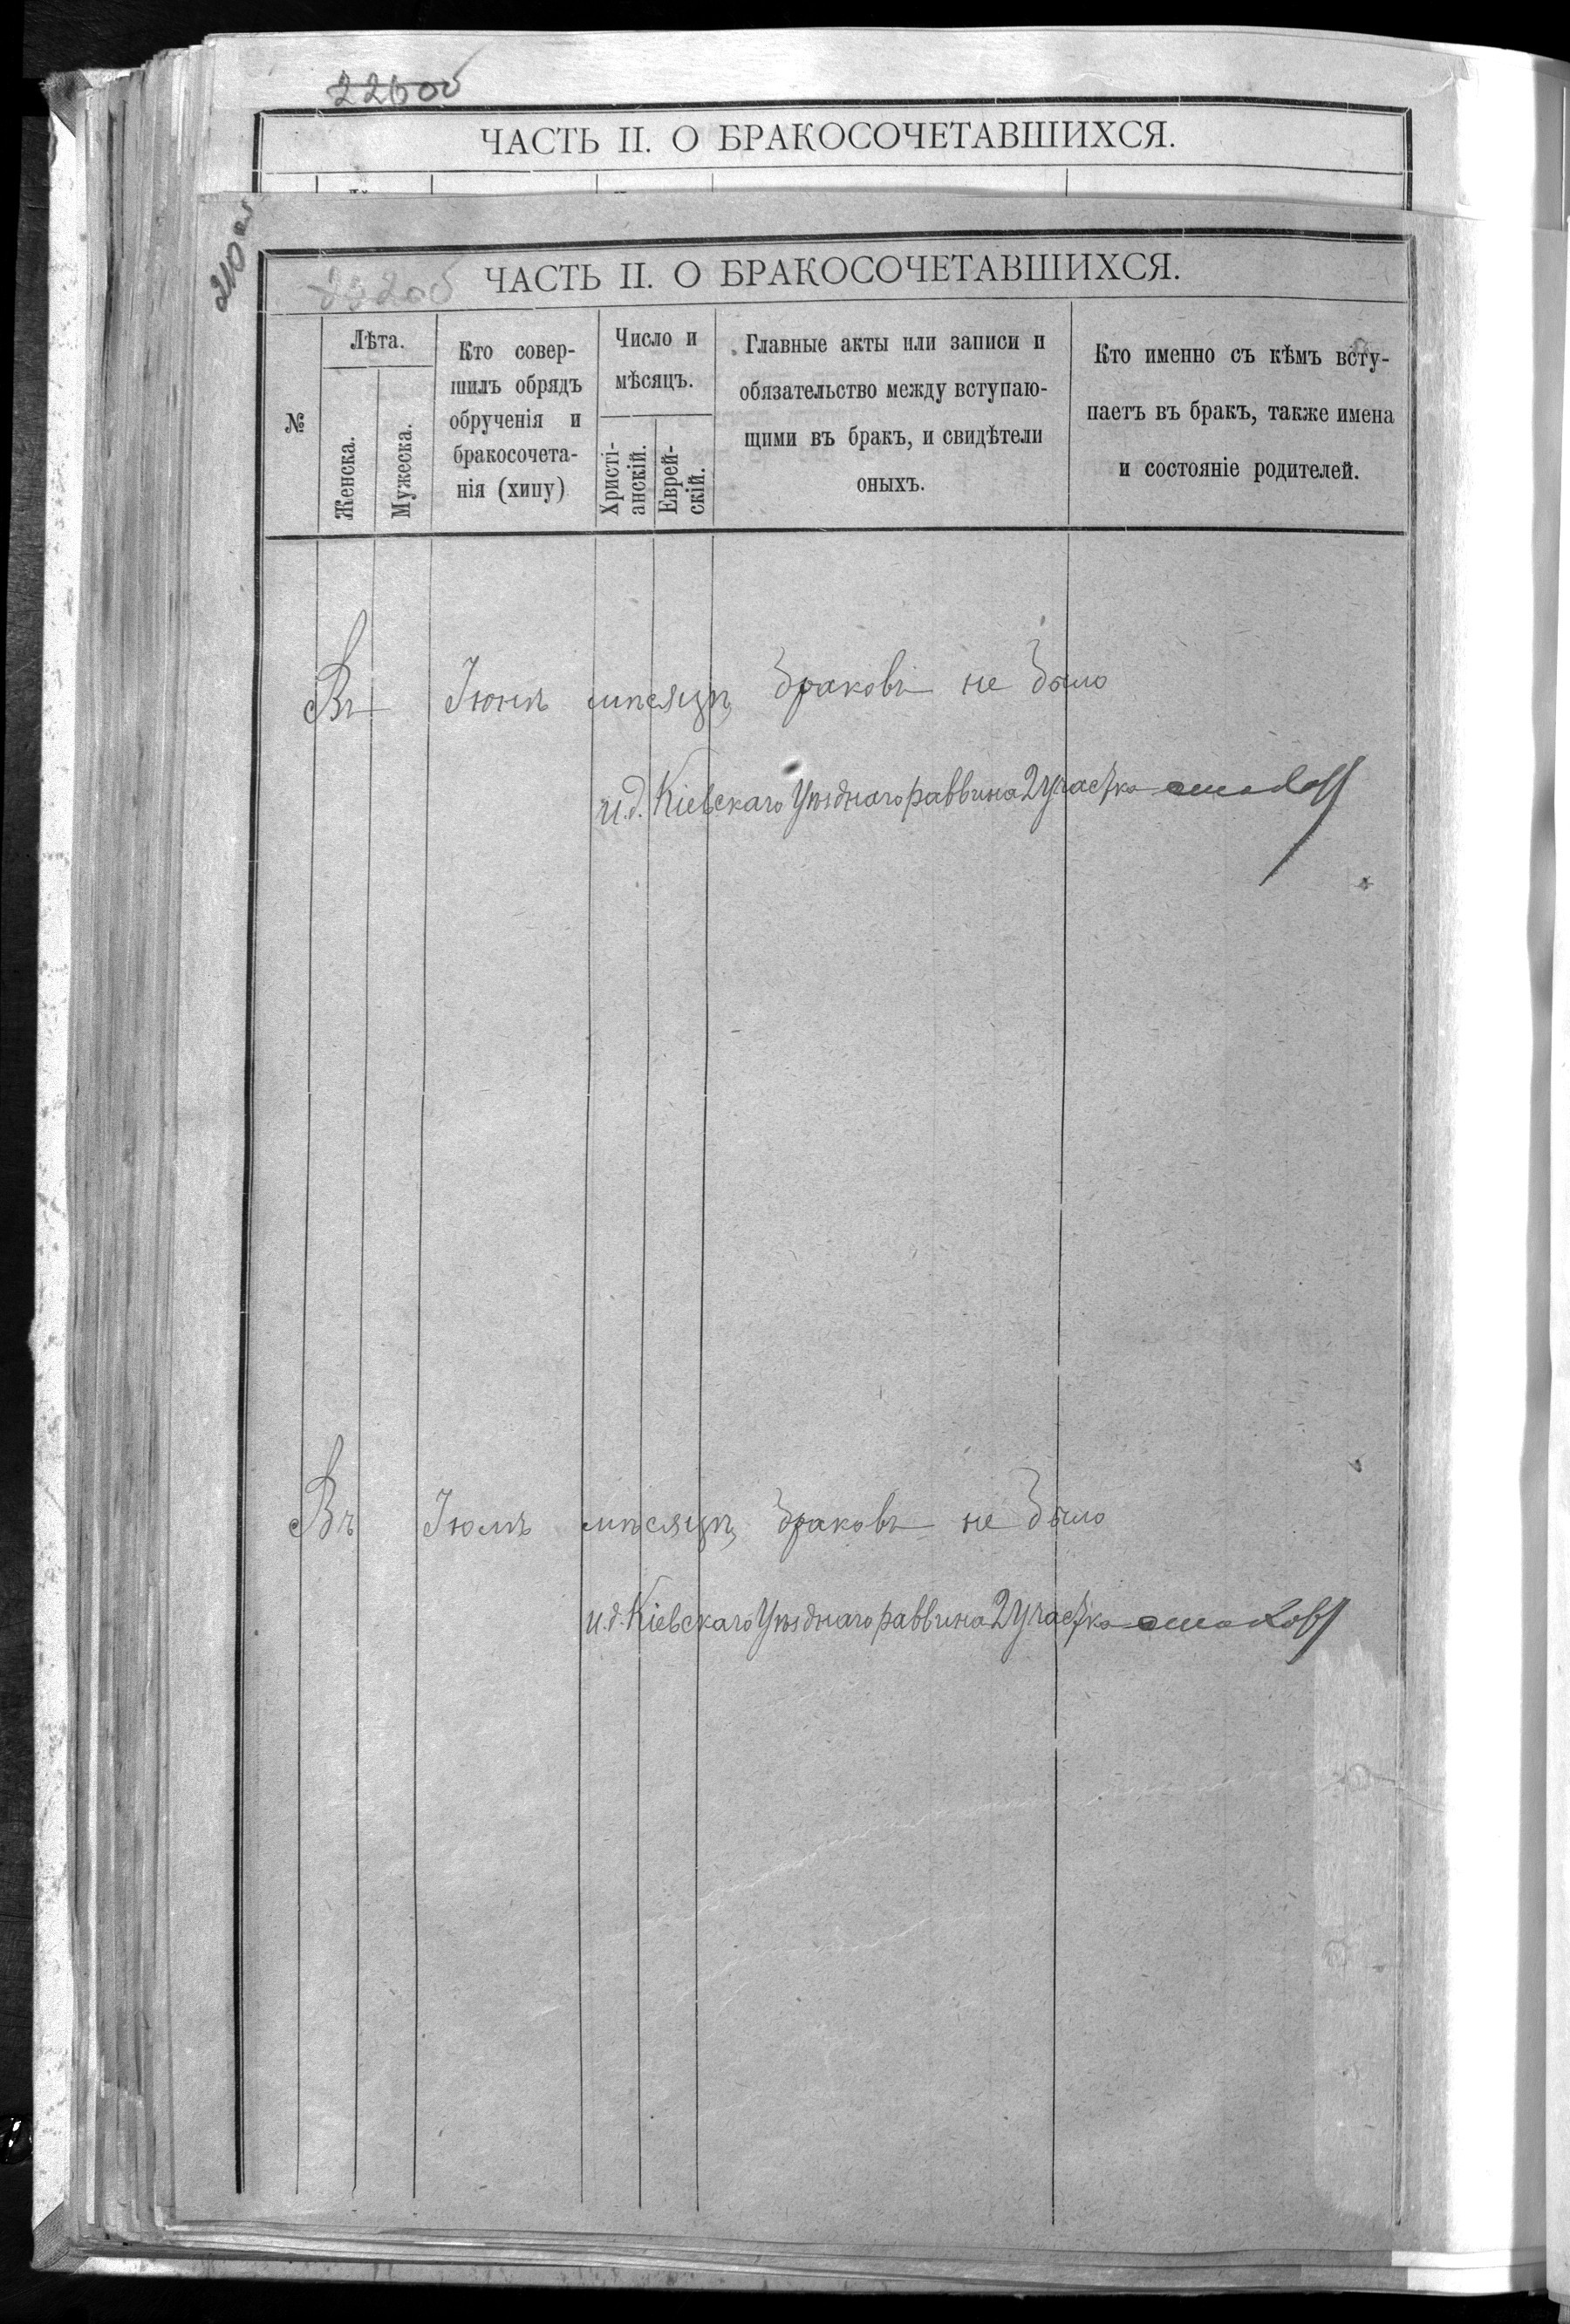 ЧАСТЬ II. О БРАКОСОЧЕТАВШИХСЯ.
ЧАСТЬ II. О БРАКОСОЧЕТАВШИХСЯ.
№
Лѣта.
Женска.
Мужеска.
Кто совер-
шилъ обрядъ
обрученія и
бракосочета-
нія (хипу)
Число и
мѣсяцъ.
Христі-
анскій.
Еврей-
скій.
Главные акты или записи и
обязательство между вступаю-
щими въ бракъ, и свидѣтели
оныхъ.
Кто именно съ кѣмъ всту-
паетъ въ бракъ, также имена
и состояніе родителей.
Въ Іюнѣ мѣсяцѣ браковъ не было
и.д. Кіевскаго Уѣзднаго раввина 2 участка
Въ Іюлѣ мѣсяцѣ браковъ не было
и.д. Кіевскаго Уѣзднаго раввина 2 участка